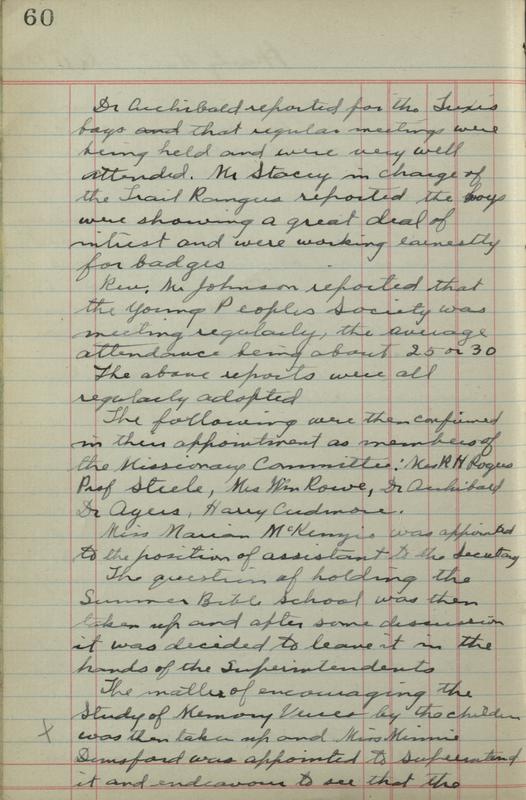 60
Dr Archibald reported for the Tuxis
boys and that regular meetings were
being held and were very well
attended. Mr Stacey in charge of
the Trail Rangers reported the boys
were showing a great deal of
intrest and were working earnestly
for badges
Rev. Mr Johnson reported that
the Young Peoples Society was
meeting regularly, the average
attendance being about 25 or 30
The above reports were all
regularly adopted
The following were then confirmed
in their appointment as members of
the Missionary Committee: Mrs R H Rogers
Prof Steele, Mrs Wm Rowe, Dr Archibald
Dr Ayers, Harry Cudmore.
Miss Marian McKenzie was appointed
to the position of assistant to the Secretary
The question of holding the
Summer Bible School was then
taken up and after some discussion
it was decided to leave it in the
hands of the Superintendents
The matter of encouraging the
Study of Memory Verses by the children
x was then taken up and Miss Minnie
Dunsford was appointed to superintend
it and endeavour to see that the